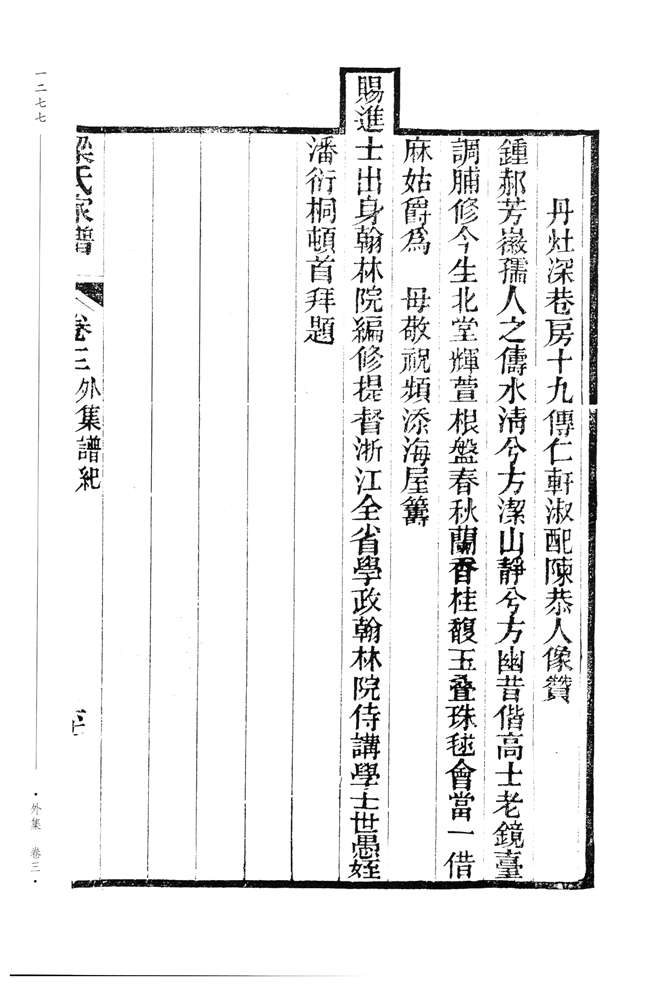 丹灶深巷房十九傳仁軒淑配陳恭人像贊
鍾郝芳嶶孺人之儔水清兮方潔山靜兮方幽昔偕高士老鏡臺
調脯修今生北堂輝萱根盤春秋蘭香桂馥玉叠珠毬會當一借
麻姑爵爲　母敬祝頻添海屋籌
賜進士出身翰林院編修提督浙江全省學政翰林院侍講學士世愚姪
潘衍桐頓首拜題
梁氏家譜　卷三　外集譜紀
一二七七
·外集　卷三·